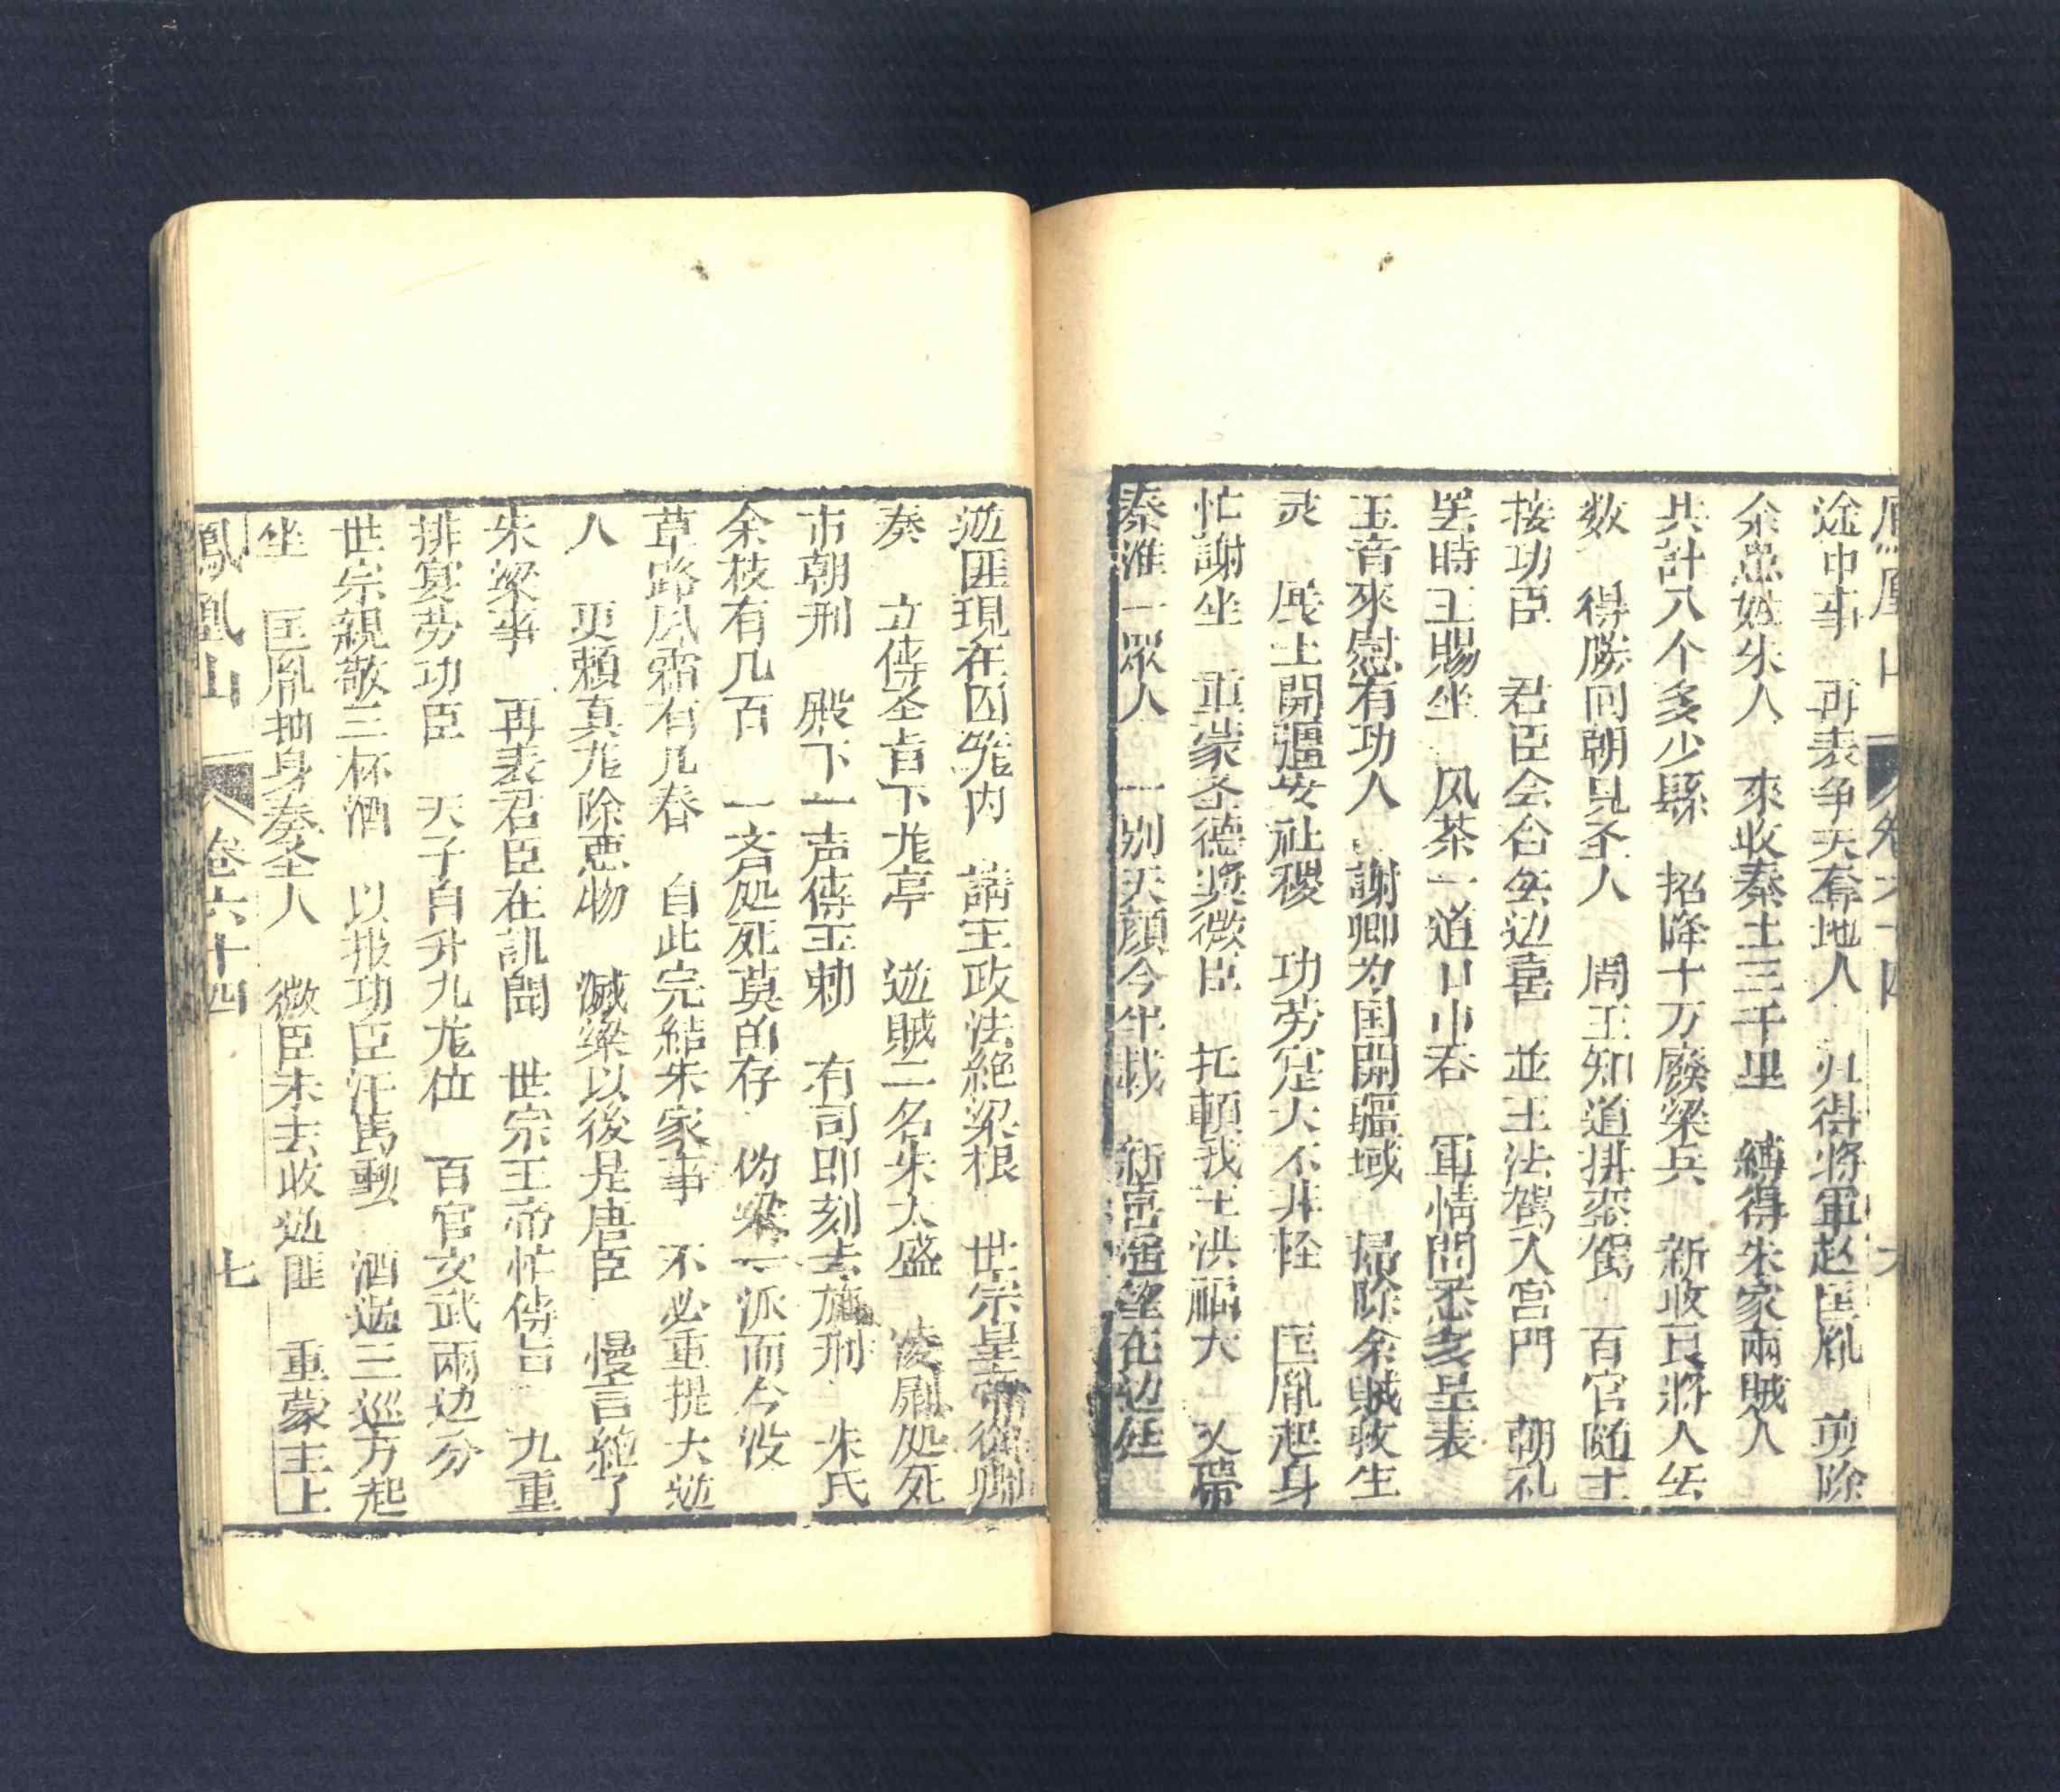 鳳凰山 卷六十四 六
途中事 再表争天奪地人 归得將軍赵匡胤 剪除
余忽姓朱人 來收秦土三千里 縛得朱家兩賊人
共計八个多少縣 招降十万廢梁兵 新收良將人無
数 得勝回朝見圣人 周王知道排鑾駕 百官随主
接功臣 君臣会合無边喜 並王法駕入宫門 朝礼
罢時王賜坐 风茶一道口中吞 軍情問悉多呈表
玉音來慰有功人 謝卿为国開疆域 掃除余賊救生
灵 展土開疆安社稷 功劳寔大不非轻 匡胤起身
忙謝坐 重蒙圣德奨微臣 托頼我王洪福大 又帶
秦淮一眾人 一別天顏今半載 新君遥望在边廷
逆匪現在囚笼内 請王政法絕梁根 世宗皇帝從卿
奏 立傳圣旨下龙亭 逆賊二名朱太盛 凌剐处死
市朝刑 殿下一声傳玉勅 有司即刻去施刑 朱氏
余枝有几百 一斉处死莫的存 伪梁一派而今沒
草路风霜有几春 自此完結朱家事 不必重提大逆
人 更頼真龙除惡物 滅梁以後是唐臣 慢言絕了
朱梁事 再表君臣在訊聞 世宗王帝忙傳旨 九重
排宴劳功臣 天子自升九龙位 百官文武兩边分
世宗親敬三杯酒 以报功臣汗馬勳 酒過三巡方起
坐 匡胤抽身奏圣人 微臣未去收逆匪 重蒙主上
鳳凰山 卷六十四 七